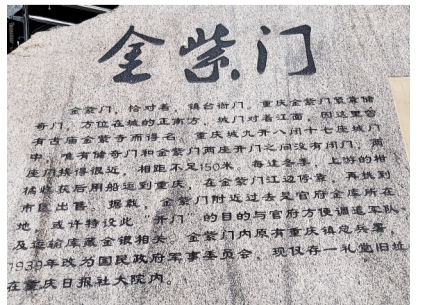 金紫门
金紫门，恰对着，镇台衙门，重庆金紫门紧靠储
奇门，方位在城的正南方，城门对着江面，因这里曾
有古庙金紫寺而得名，重庆城九开八闭十七座城门
中，唯有储奇门和金紫门两座开门之间没有闭门，两
座门挨得很近，相距不足150米，每逢冬季，上游的柑
橘收获后用船运到重庆，在金紫门江边停靠，再挑到
市区出售，据载，金紫门附近过去是官府金库所在
地，或许特设此"开门"的目的与官府方便调遣军队
及运输库藏金银相关。金紫门内原有重庆镇总兵署，
1939年改为国民政府军事委员会，现仅存一礼堂旧址
在重庆日报社大院内。